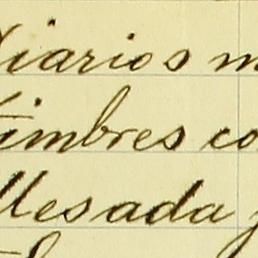 Diarios m
timbres co
Mesada